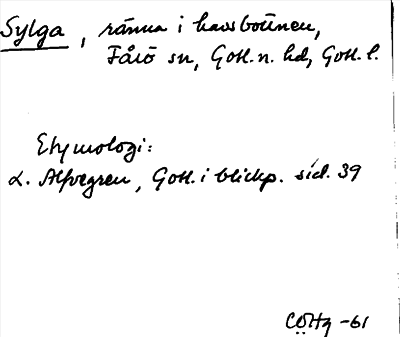 Sylga, ränna i havsbottnen,
Fårö sn, Gotl. n. hd, Gotl. l.
Etymologi:
L. Alfvegren, Gotl. i blickp. sid. 39
CÖHg -61